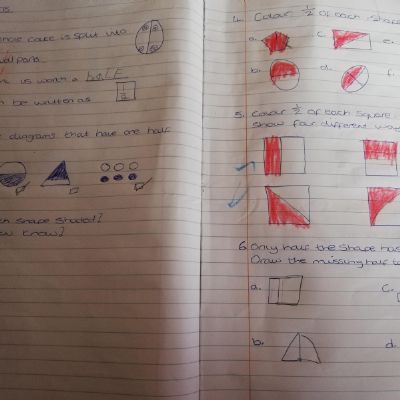 cake is split into
parts.
is worth a
be written as
1/2
diagrams that have one half
shape shaded?
know?
4. Colour 1/2 of each shape
a.
c.
e.
b.
d.
f.
5. Colour 1/2 of each square.
Show four different
6. Only half the shape has
Draw the missing half
a.
c.
b.
d.